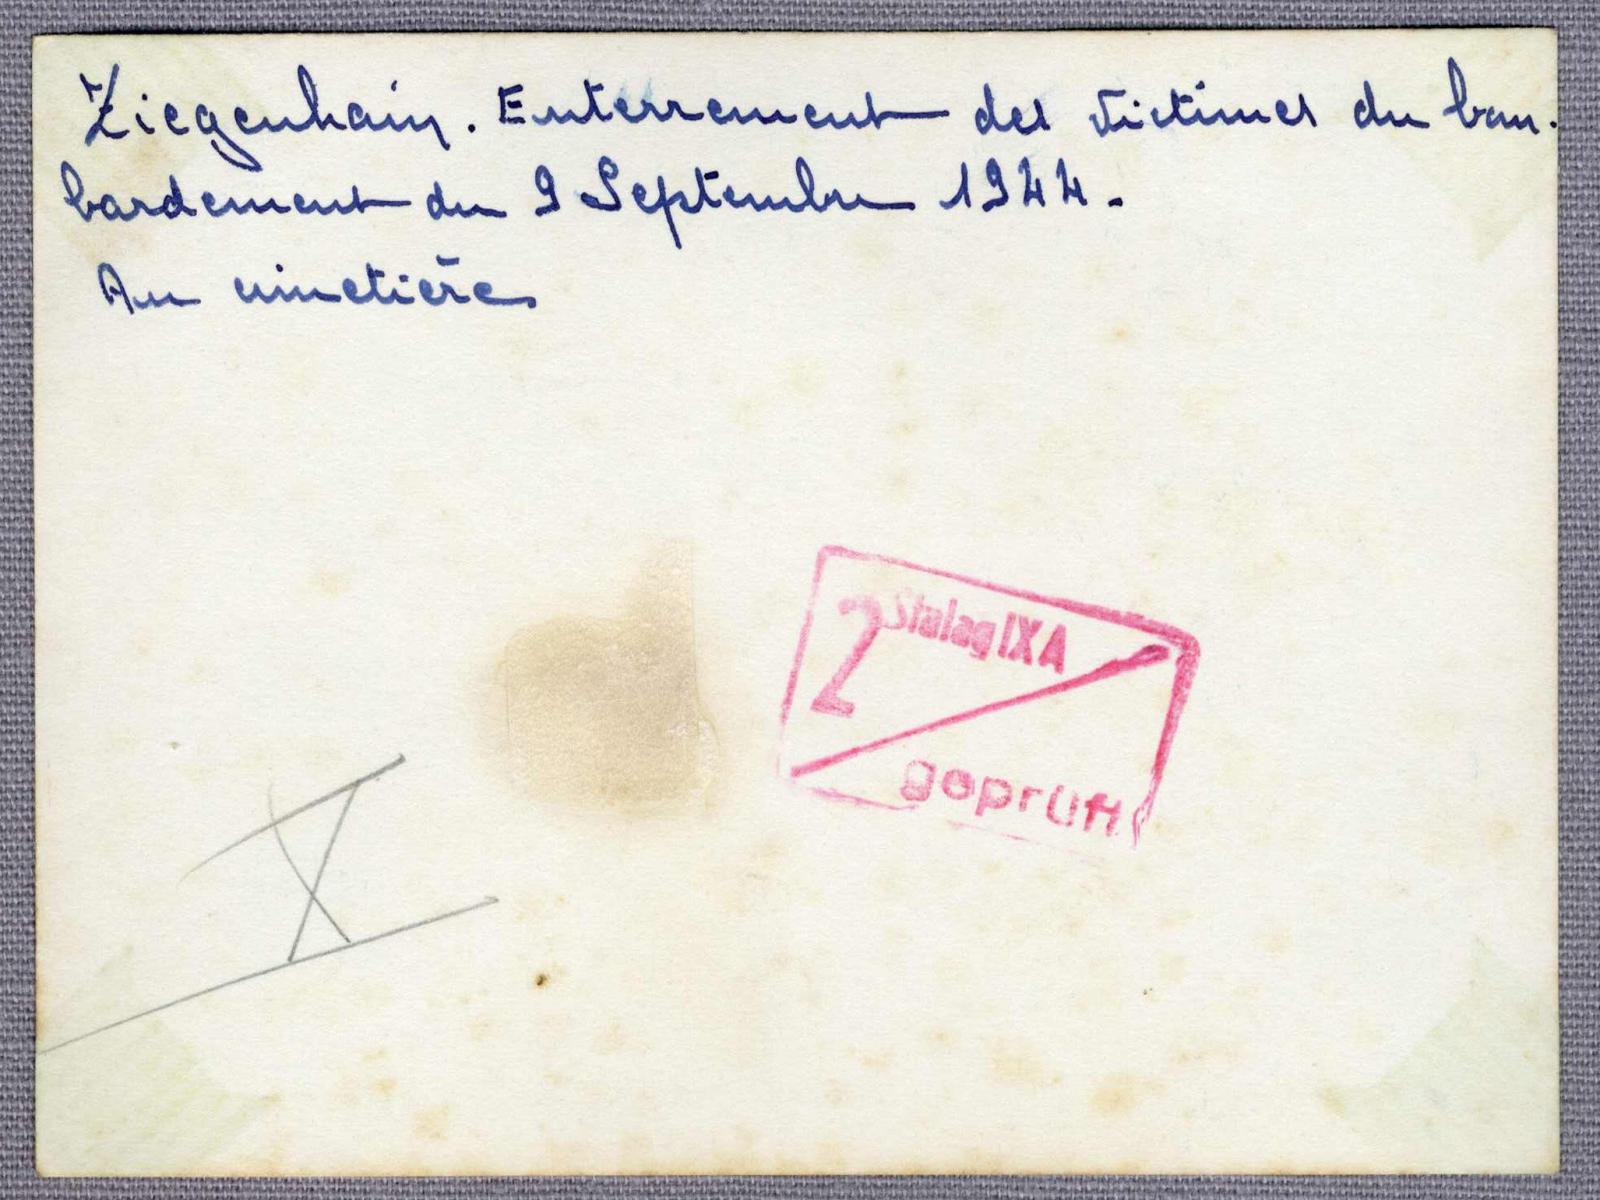 Ziegenhain. Enterrement des victimes du bom-
bardement du 9 Septembre 1944.
Au cimetière
2 Stalag IX A
geprüft
X